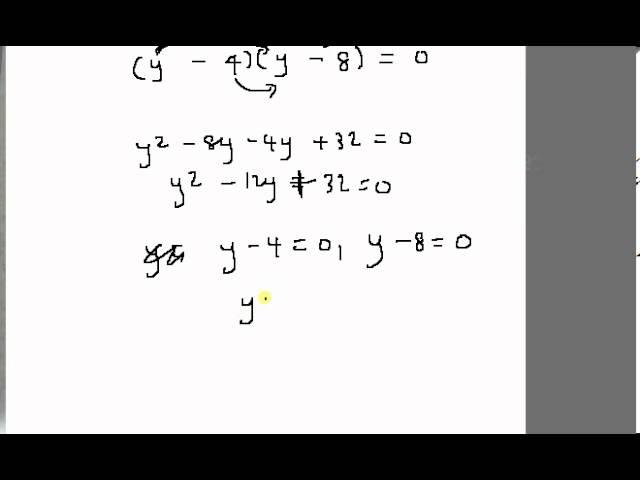 (y - 4)(y - 8) = 0
y² - 8y - 4y + 32 = 0
y² - 12y + 32 = 0
y - 4 = 0, y - 8 = 0
y